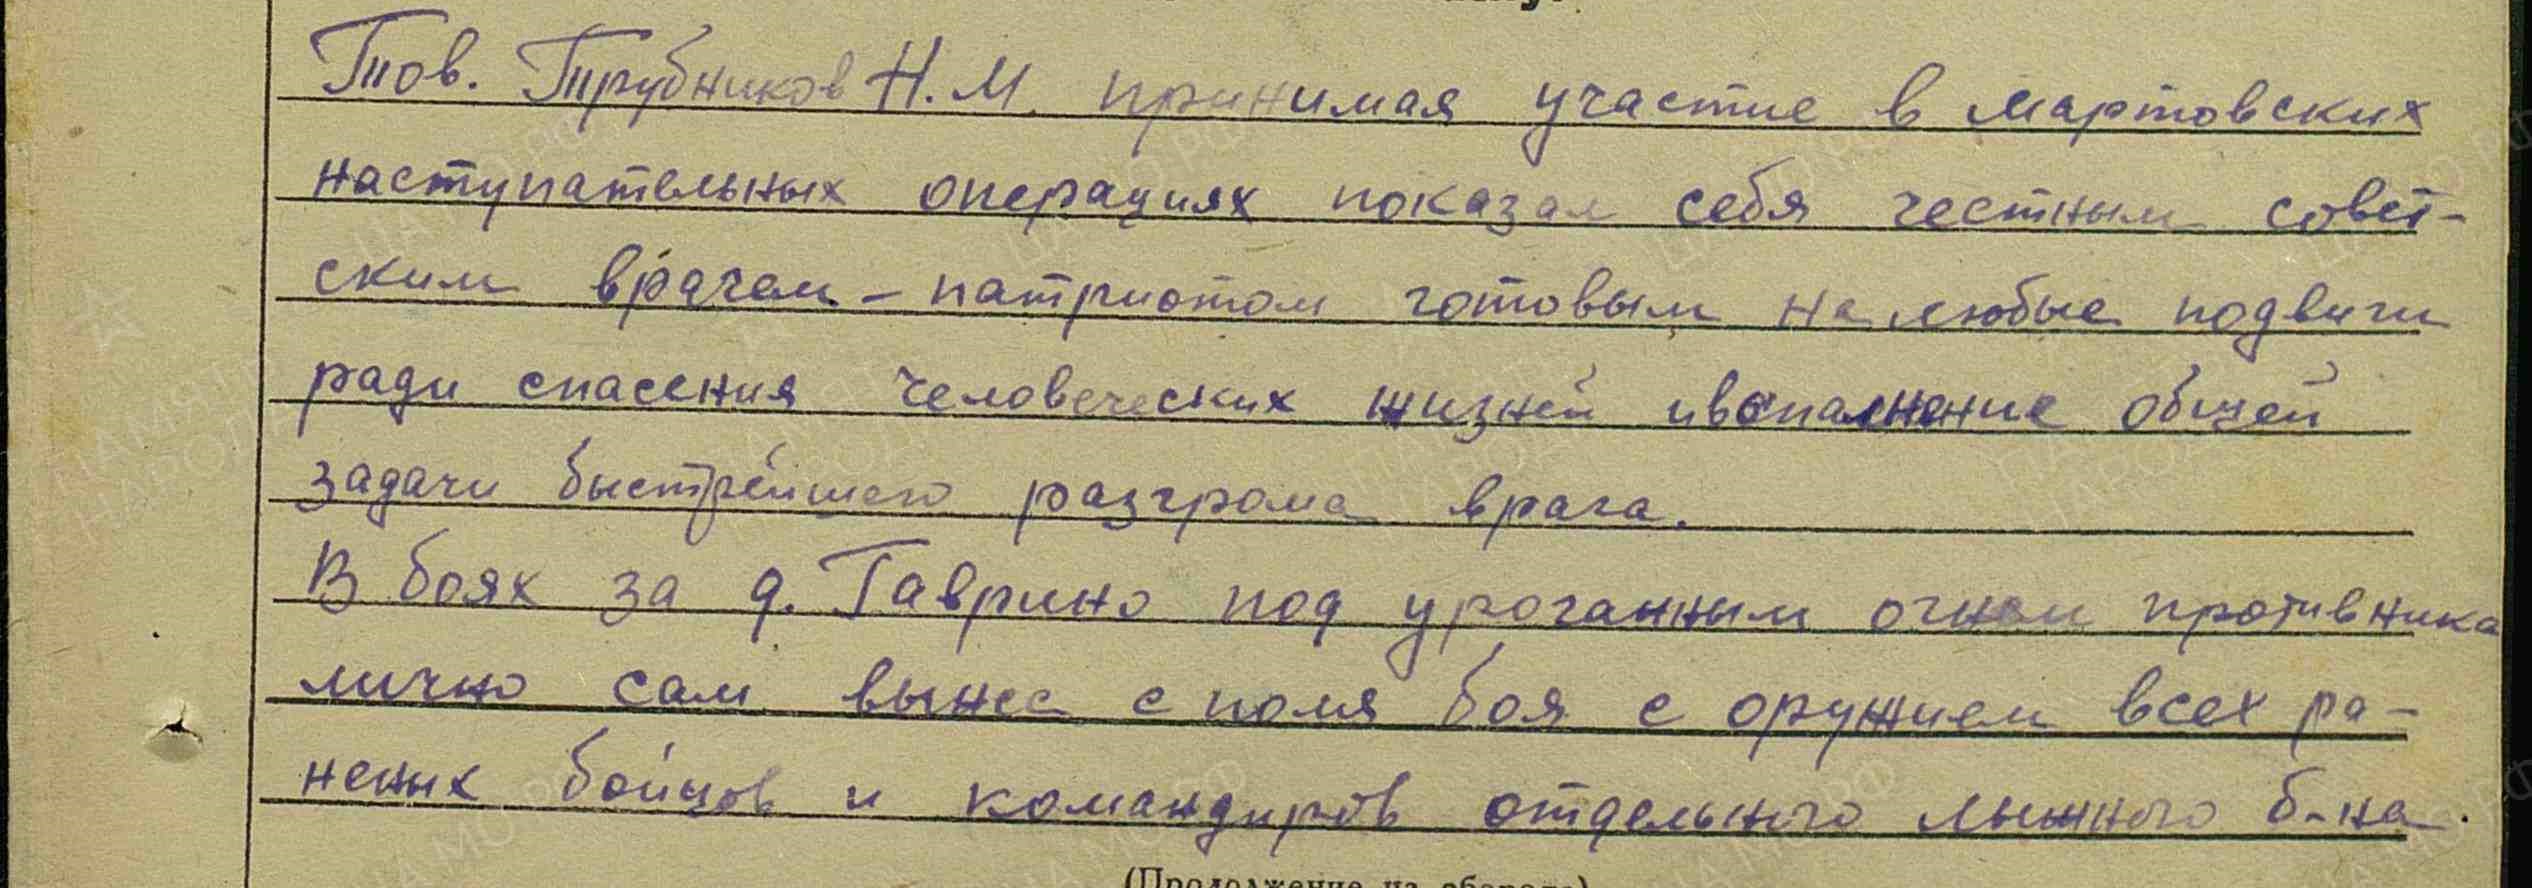 Тов. Трубников Н.М. принимая участие в мартовских
наступательных операциях показал себя честным совет-
ским врачем - патриотом готовым на любые подвиги
ради спасения человеческих жизней и общей
задачи быстрейшего разгрома врага.
В боях за д. Гаврино под ураганным огнем противника
лично сам вынес с поля боя с оружием всех ра-
неных бойцов и командиров отдельного лыжного б-на.
(Продолжение на обороте)